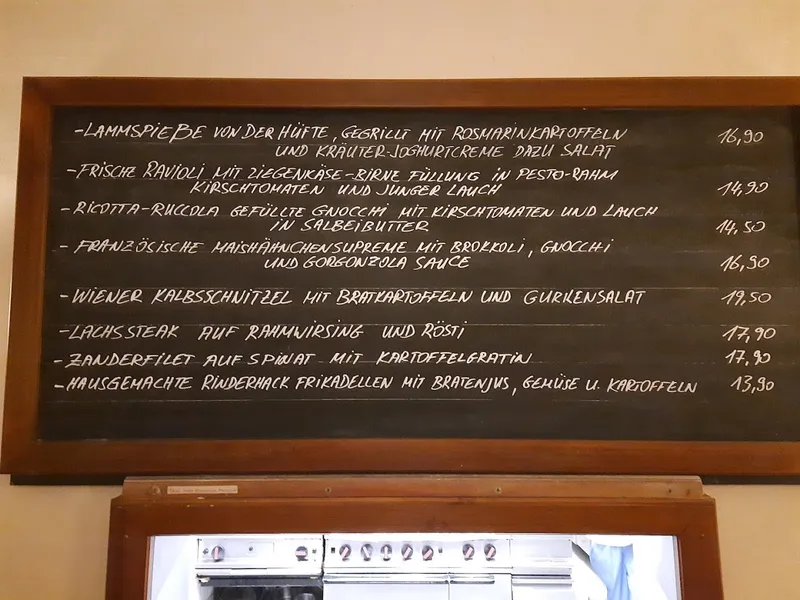 -LAMMSPIEßE VON DER HÜFTE, GEGRILLT MIT ROSMARINKARTOFFELN 16,90
UND KRÄUTER-JOGHURTCREME DAZU SALAT
-FRISCHE RAVIOLI MIT ZIEGENKÄSE-BIRNE FÜLLUNG IN PESTO-RAHM
KIRSCHTOMATEN UND JUNGER LAUCH 14,90
-RICOTTA-RUCCOLA GEFÜLLTE GNOCCHI MIT KIRSCHTOMATEN UND LAUCH
IN SALBEIBUTTER 14,50
-FRANZÖSISCHE MAISHÄHNCHENSUPREME MIT BROKKOLI, GNOCCHI
UND GORGONZOLA SAUCE 16,90
-WIENER KALBSSCHNITZEL MIT BRATKARTOFFELN UND GURKENSALAT 19,50
-LACHSSTEAK AUF RAHMWIRSING UND RÖSTI 17,90
-ZANDERFILET AUF SPINAT MIT KARTOFFELGRATIN 17,90
-HAUSGEMACHTE RINDERHACK FRIKADELLEN MIT BRATENJUS, GEMÜSE U. KARTOFFELN 13,90